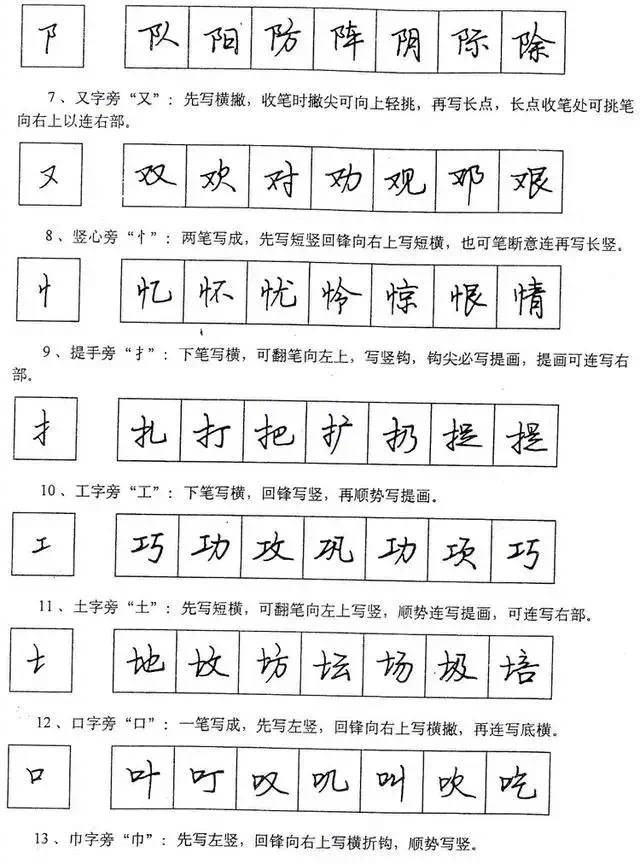 阝 队 阳 防 阵 阴 际 除
7、又字旁“又”：先写横撇，收笔时撇尖可向上轻挑，再写长点，长点收笔处可挑笔
向右上以连右部。
又 双 欢 对 劝 观 邓 艰
8、竖心旁“忄”：两笔写成，先写短竖回锋向右上写短横，也可笔断意连再写长竖。
忄 忆 怀 忧 怜 惊 恨 情
9、提手旁“扌”：下笔写横，可翻笔向左上，写竖钩，钩尖必写提画，提画可连写右
部。
扌 扎 打 把 扩 扔 提 提
10、工字旁“工”：下笔写横，回锋写竖，再顺势写提画。
工 巧 功 攻 巩 功 项 巧
11、土字旁“土”：先写短横，可翻笔向左上写竖，顺势连写提画，可连写右部。
土 地 坟 坊 坛 场 圾 培
12、口字旁“口”：一笔写成，先写左竖，回锋向右上写横撇，再连写底横。
口 叶 叮 叹 叽 叫 吹 吃
13、巾字旁“巾”：先写左竖，回锋向右上写横折钩，顺势写竖。